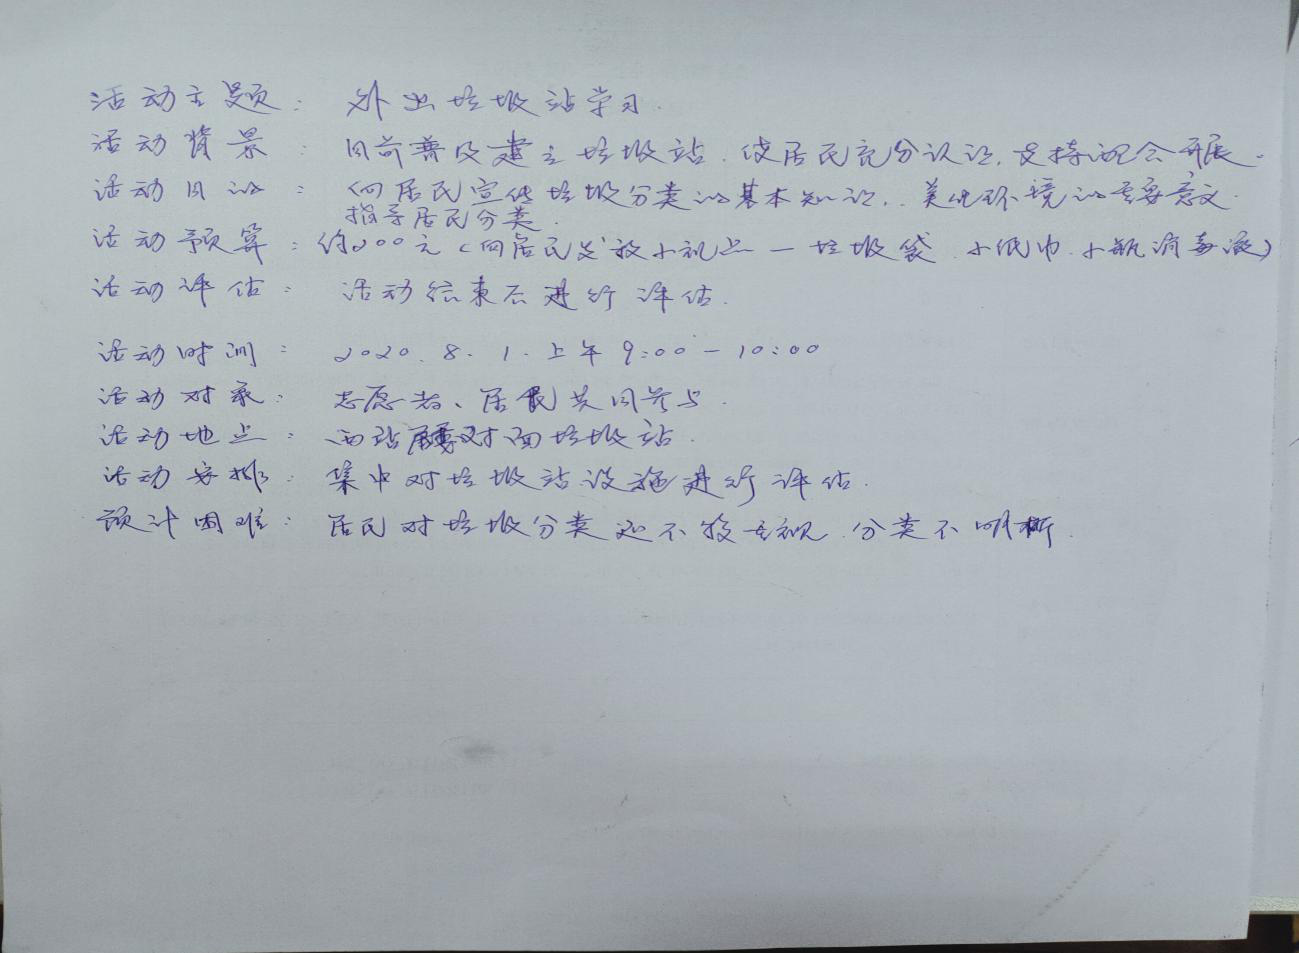 活动主题：外出垃圾站学习.
活动背景：目前普及建立垃圾站.使居民充分认识,支持配合开展.
活动目的：向居民宣传垃圾分类的基本知识..美化环境的重要意义.
指导居民分类.
活动预算：约200元(向居民发放小礼品—垃圾袋.小纸巾.小瓶消毒液)
活动评估：活动结束后进行评估.
活动时间：2020.8.1.上午9:00-10:00
活动对象：志愿者、居民共同参与.
活动地点：西站对面垃圾站.
活动安排：集中对垃圾站设施进行评估.
预计困难：居民对垃圾分类还不够重视.分类不明晰.